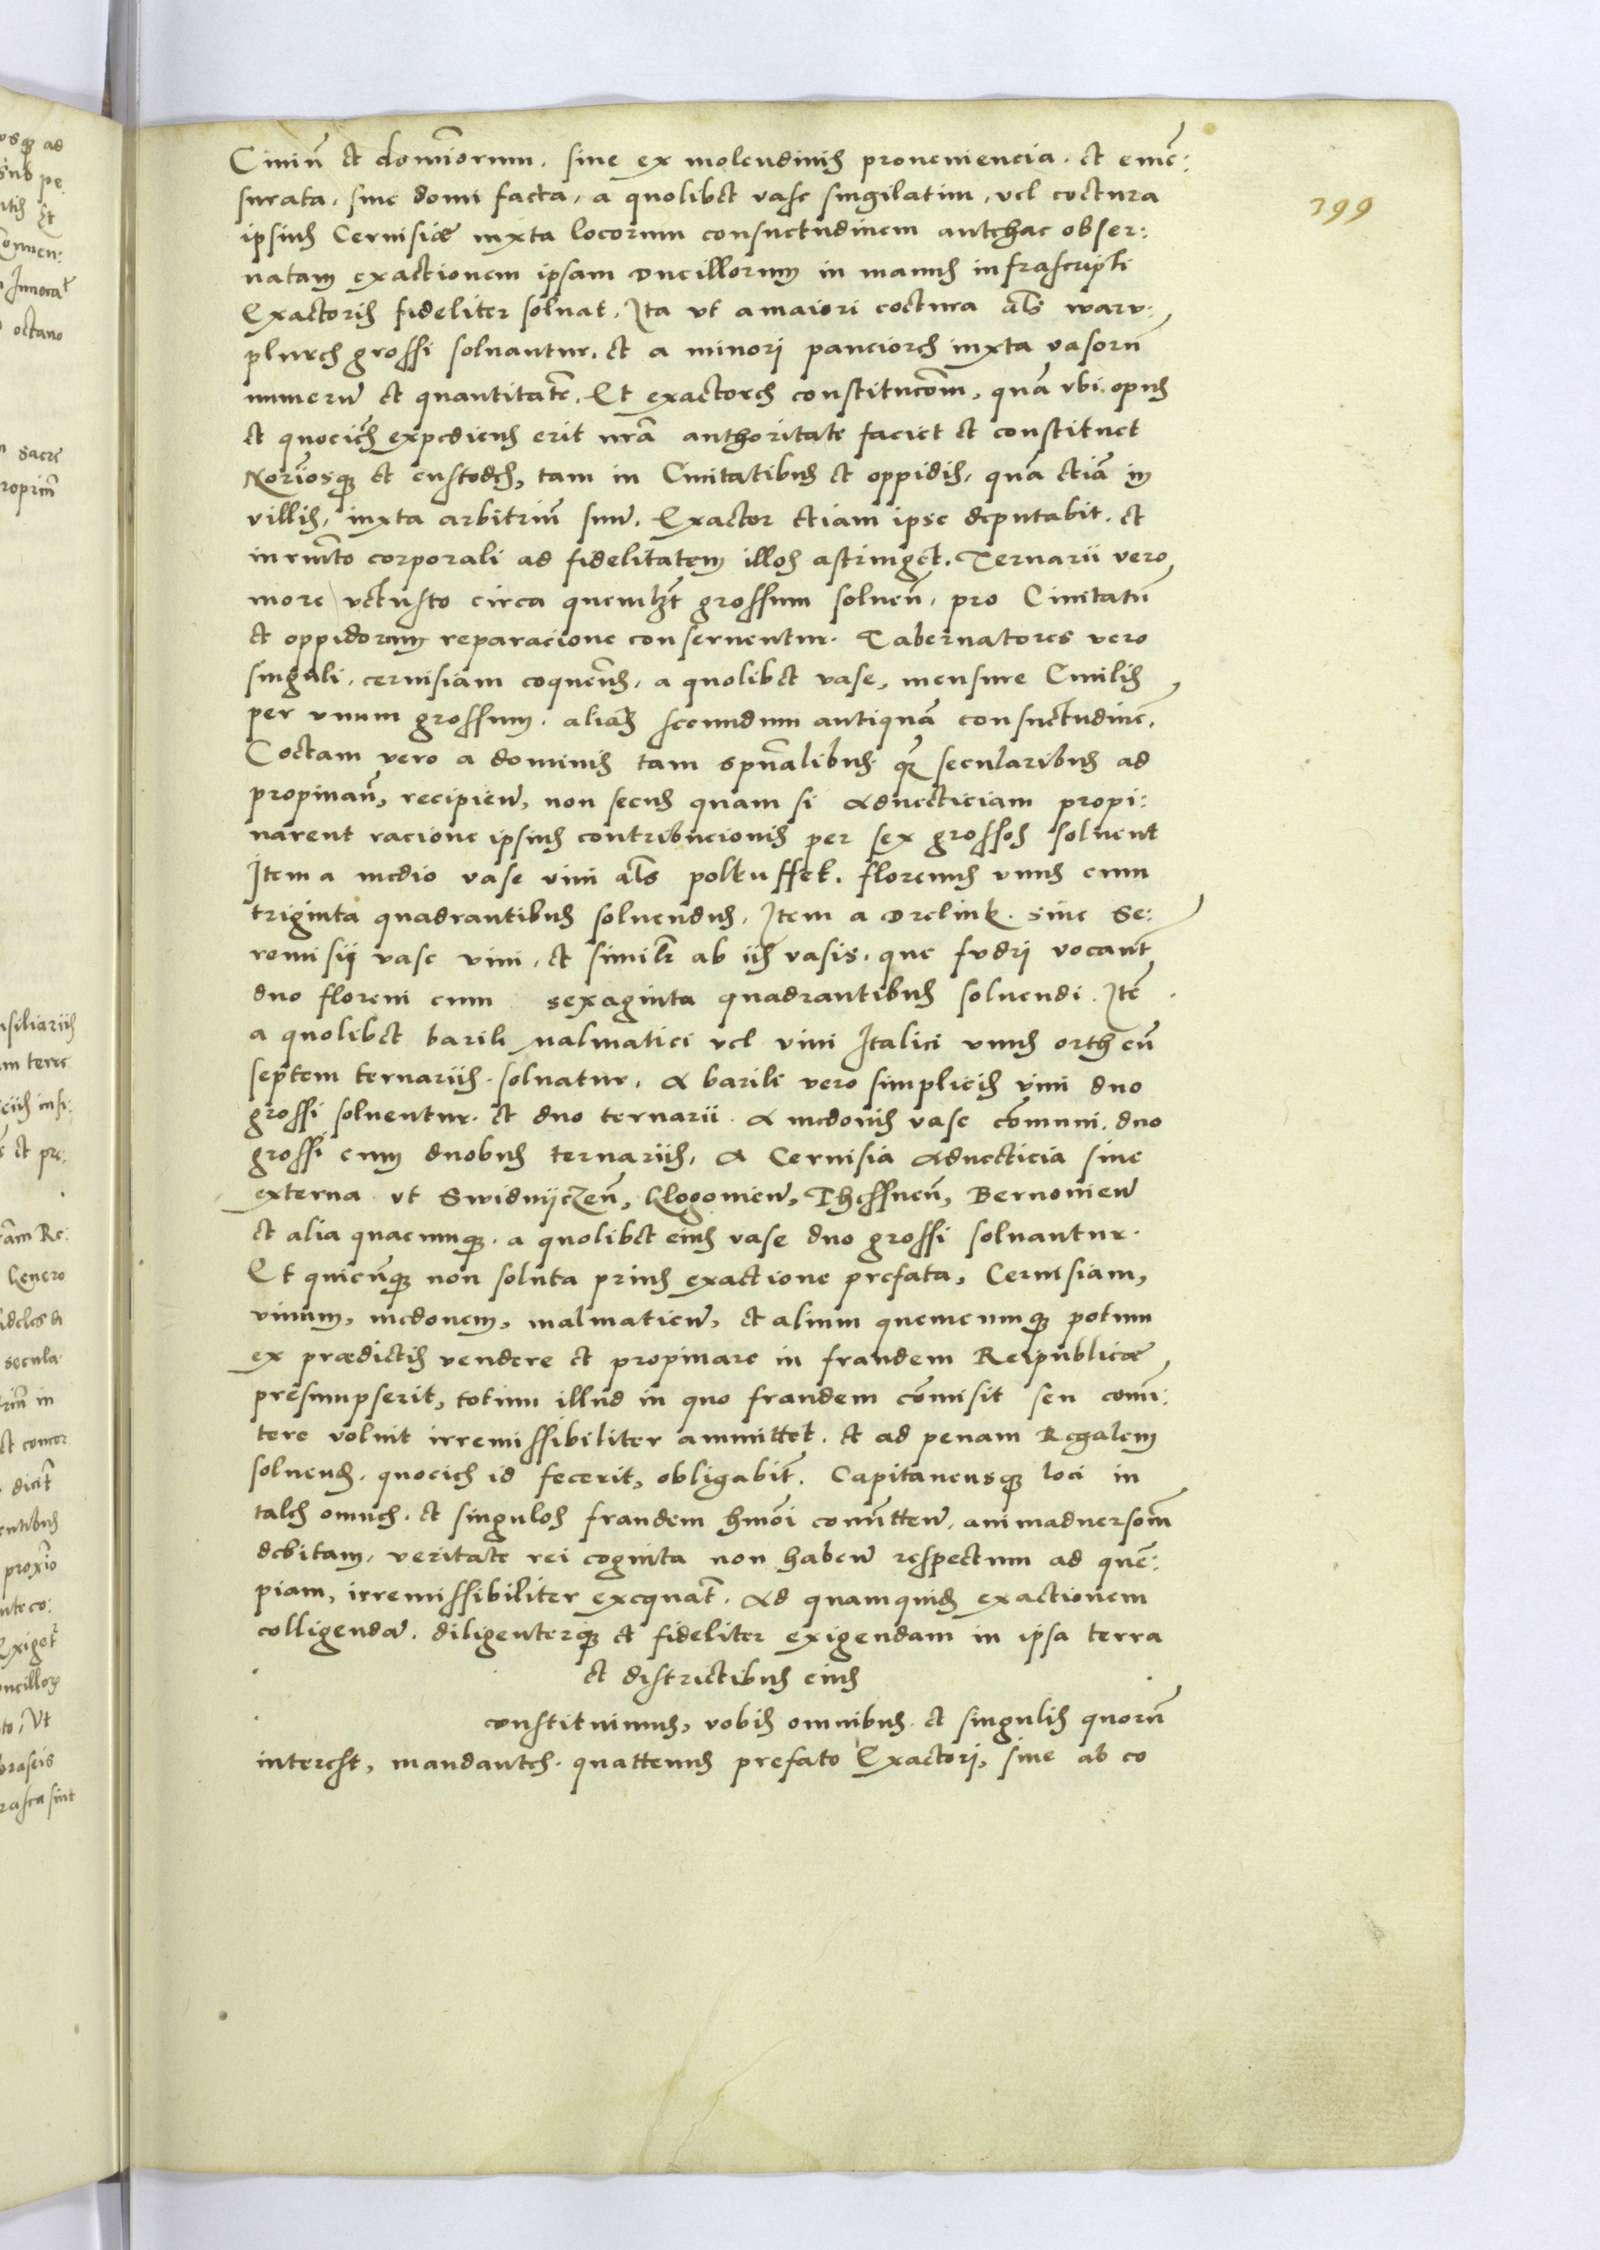 399
Ciuiũ et domĩorum. siue ex molendinis proueniencia. et emẽ:
surata. siue domi facta, a quolibet vase singilatim, vel coctura
ipsius Ceruisiæ iuxta locorum consuetudinem antehac obser:
uatam exactionem ipsam Ducillorum in manus infrascripti
Exactoris fideliter soluat. Ita vt a maiori coctura als warv:
plures grossi soluantur. et a minori pauciores iuxta vasorũ
numerũ et quantitatẽ. Et exactores constitucom̃, quã vbi opus
et quocies expediens erit nrã authoritate faciet et constituet
Norĩosq et custodes, tam in Ciuitatibus et oppidis, quã etiã in
villis, iuxta arbitriũ suũ. Exactor etiam ipse deputabit. et
iuramto corporali ad fidelitatem illos astringet. Ternarii vero
more vetusto circa quemlzt grossum soluen̄, pro Ciuitatũ
et oppidorum reparacione conseruentur. Tabernatores vero
singuli. ceruisiam coquen̄s, a quolibet vase, mensure Ciuilis
per vnum grossum. alias secundum antiquã consuetudinẽ.
Coctam vero a dominis tam spũalibus. q̃ secularibus ad
propinan̄, recipien̄, non secus quam si aduecticiam propi:
narent racione ipsius contribucionis per sex grossos soluent
Item a medio vase vini als poltuffet. florenus vnus cum
triginta quadrantibus soluendus. Item a Drelink. siue Se:
remisij vase vini, et similr ab iis vasis. que fvdri vocant̃
duo floreni cum sexaginta quadrantibus soluendi. Itẽ
a quolibet barili malmatici vel vini Italici vnus orth cũ
septem ternariis. soluatur. A barili vero simplicis vini duo
grossi soluentur. et duo ternarii. A medonis vase cõmuni. duo
grossi cum duobus ternariis. A Ceruisia Aduecticia siue
externa vt Swidnijczen̄, Glogouien̄, Thessnen̄, Bernouien̄
et alia quacunq. a quolibet eius vase duo grossi soluantur.
Et quicũq non soluta prius exactione prefata, Ceruisiam,
vinum, medonem, malmaticũ, et alium quemcumq potum
ex prædictis vendere et propinare in fraudem Reipublicæ
presumpserit, totum illud in quo fraudem cõmisit seu comi:
tere voluit irremissibiliter ammittet. et ad penam Regalem
soluend. quocies id fecerit, obligabit̃. Capitaneusq loci in
tales omnes. et singulos fraudem hmõi comitten̄. animaduersom̃
debitam, veritate rei cognita non haben̄ respectum ad quẽ:
piam, irremissibiliter exequat̃. Ad quamquid exactionem
colligendã. diligenterq et fideliter exigendam in ipsa terra
et districtibus eius
constituimus, vobis omnibus. et singulis quorũ
interest, mandantes. quattenus prefato Exactori, siue ab eo